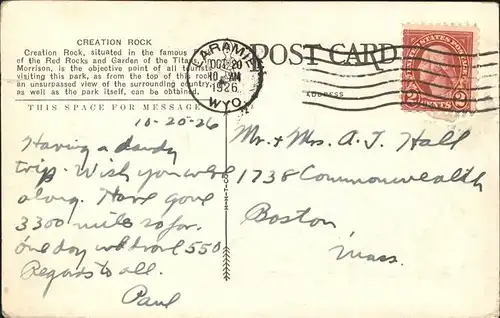 CREATION ROCK
Creation Rock, situated in the famous
of the Red Rocks and Garden of the Tita
Morrison, is the objective point of all tourists
visiting this park, as from the top of this rock
an unsurpassed view of the surrounding country,
as well as the park itself, can be obtained.
THIS SPACE FOR MESSAGE
LARAMIE
OCT 20
10 AM
1926
WYO.
POST CARD
ADDRESS
UNITED STATES POSTAGE
2 CENTS 2
10-20-26
Having a dandy
trip. Wish you were
along. Have gone
3300 miles so far.
One day we drove 550
Regards to all.
Paul
Mr. & Mrs. A. J. Hall
1738 Commonwealth
Boston
Mass.